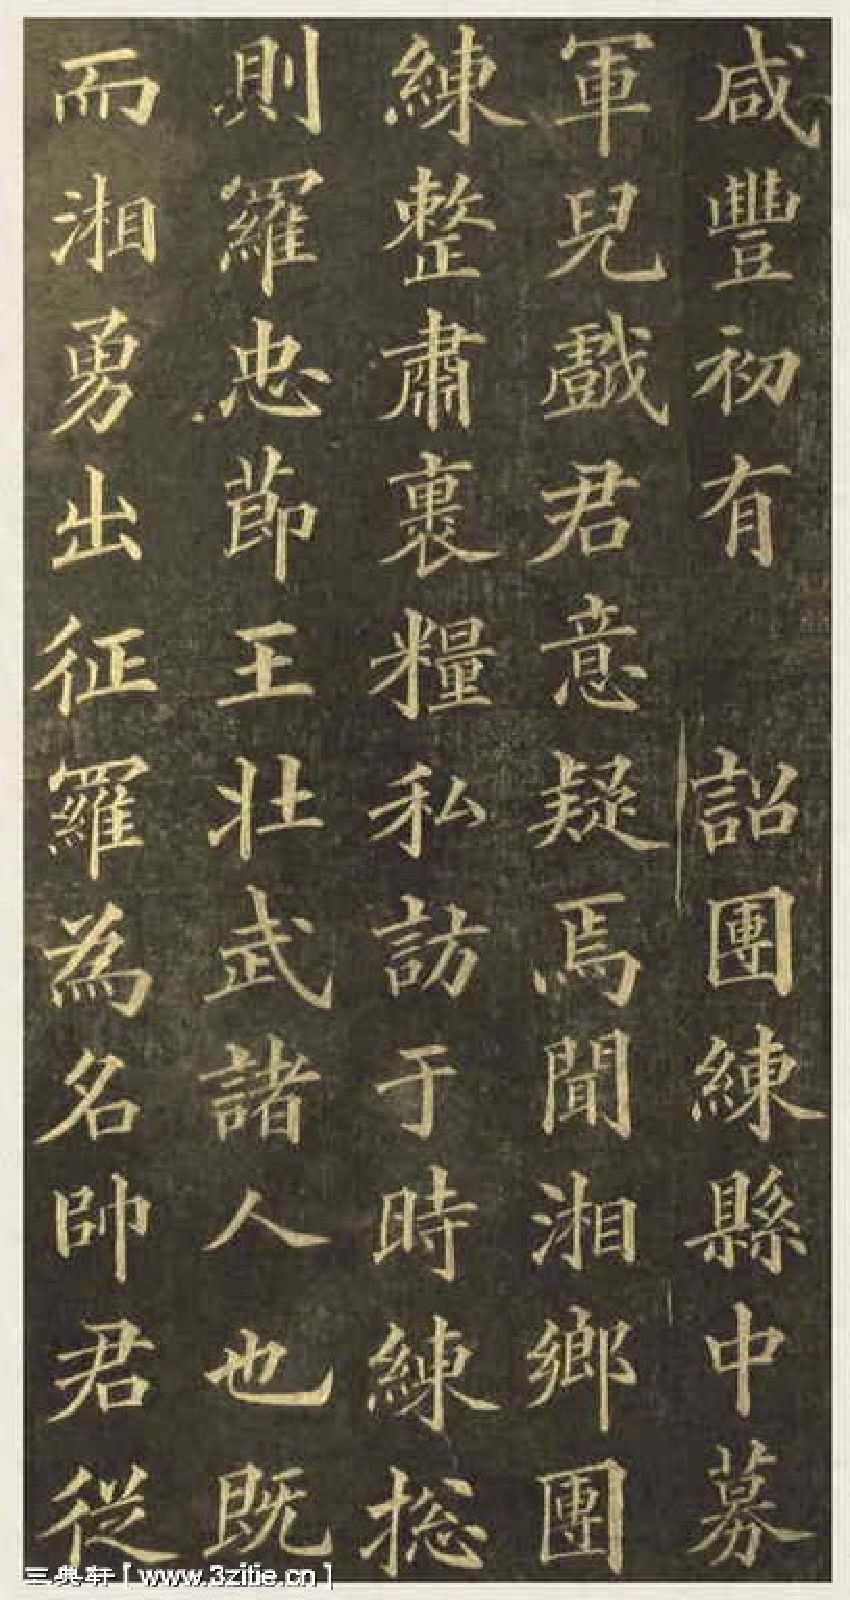 咸豐初有 詔團練縣中募
軍兒戲君意疑焉聞湘鄉團
練整肅裹糧私訪于時練捴
則羅忠節王壯武諸人也既
而湘勇出征羅為名帥君從
三典轩 [ www.3zitie.cn ]